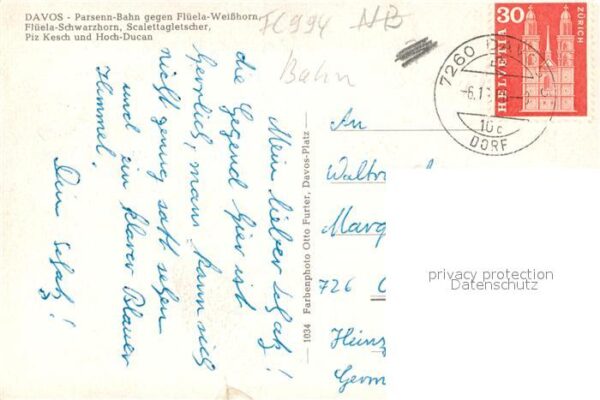 DAVOS - Parsenn-Bahn gegen Flüela-Weißhorn,
Flüela-Schwarzhorn, Scalettagletscher,
Piz Kesch und Hoch-Ducan
FC994 NB
Bahn
Mein lieber Schatz!
die Gegend hier ist
herrlich, man kann sich
nicht genug satt sehen
und ein klarer Blauer
Himmel.
Dein Schatz!
1034 Farbenphoto Otto Furter, Davos-Platz
30
HELVETIA
ZÜRICH
7260 DAV
-6.1
10c
DORF
An
Waltr
Marg
726
Heinz
Germ
privacy protection
Datenschutz